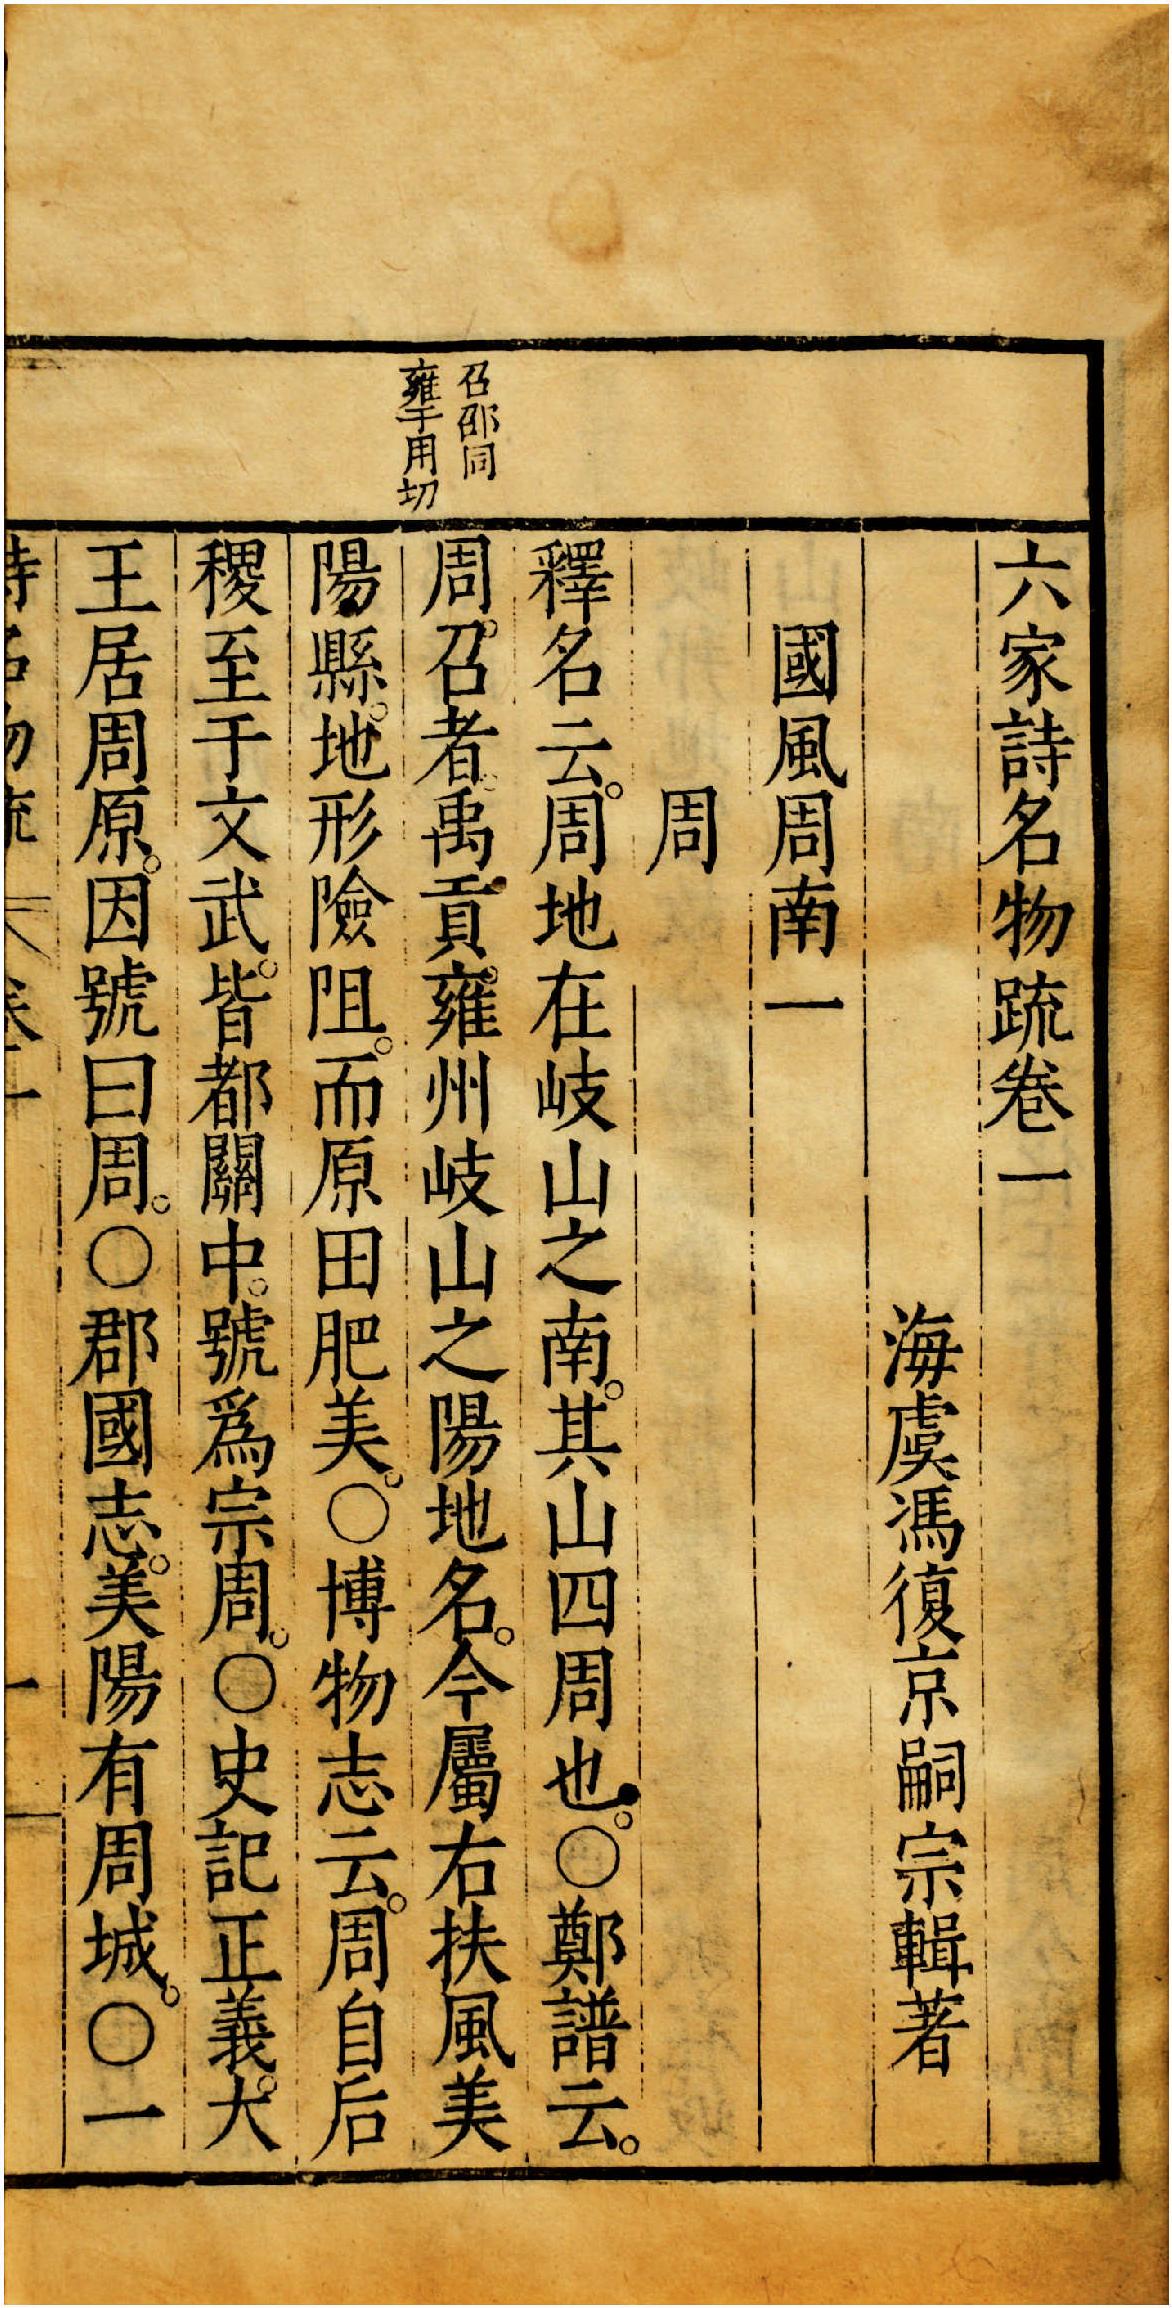 六家詩名物疏卷一
海虞馮復京嗣宗輯著
國風周南一
周
釋名云。周地在岐山之南。其山四周也。○鄭譜云。
周。召者。禹貢。雍州岐山之陽地名。今屬右扶風美
陽縣。地形險阻。而原田肥美。○博物志云。周自后
稷至于文武。皆都關中。號爲宗周。○史記正義。大
王居周原。因號曰周。○郡國志。美陽有周城。○一
召邵同
雍于用切
詩名物疏 卷一 一